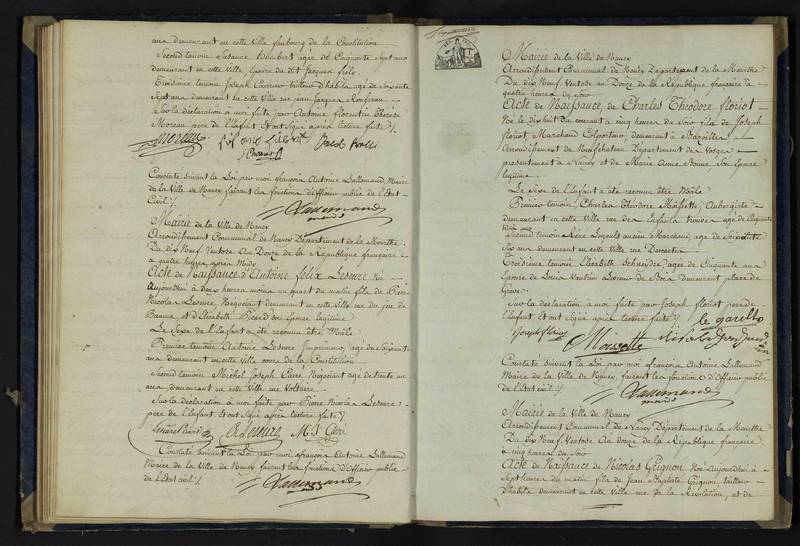 ans demeurant en cette Ville faubourg de la Constitution
Second temoin Susanne Humbert agée de Cinquante Sept ans
demeurant en cette Ville, Epouse du dit Jacques
Troisieme temoin Joseph tailleur d'habits, agé de Soixante
Sept ans demeurant en cette Ville rue Jean Jacques Rousseau
Sur la declaration à moi faite par Antoine florentin Therese
Moreau pere de l'Enfant Et ont Signé après lecture faite ./.
Moreau
Constaté Suivant la Loi par moi françois Antoine Lallemand Maire
de la Ville de Nancy, faisant les fonctions d'Officier public de l'Etat
Civil ./.
Lallemand
maire
Mairie de la Ville de Nancy
Arrondissement Communal de Nancy Département de la Meurthe
Du dix Neuf Ventose An Douze de la République française
à quatre heures après Midy
Acte de Naissance d'Antoine felix Leseure Né
Aujourd'hui à deux heures moins un quart du matin fils de Pierre
Nicolas Leseure Négociant demeurant en cette Ville rue du jeu de
Paume et d'Elisabeth Picard son Epouse legitime
Le Sexe de l'Enfant a été reconnu être Mâle
Premier temoin Antoine Leseure Imprimeur, agé de Soixante
ans demeurant en cette Ville de la Constitution
Second temoin Michel Joseph Négociant agé de trente un
ans, demeurant en cette Ville rue Voltaire
Sur la déclaration à moi faite par Pierre Nicolas Leseure
pere de l'Enfant Et ont Signé après lecture faite ./.
Constaté Suivant la Loi par moi françois Antoine Lallemand
Maire de la Ville de Nancy faisant les fonctions d'Officier public
de l'Etat civil ./.
Lallemand
maire
Mairie de la Ville de Nancy
Arrondissement Communal de Nancy Departement de la Meurthe
Du dix Neuf Ventose an Douze de la République française à
quatre heures du Soir
Acte de Naissance de Charles Theodore floriot
Né le dix huit du courant à cinq heures du Soir fils de Joseph
floriot, Marchand Colporteur, demeurant à Bazoilles
Arrondissement de Neufchateau Département des Vosges
présentement à Nancy et de Marie Anne Bonne, Son Epouse
legitime
Le Sexe de l'Enfant a été reconnu être Mâle
Premier temoin, Charles Theodore Aubergiste
demeurant en cette Ville rue des Enfants trouvés agé de Cinquante
Second temoin René ancien Marchand, agé de Soixante
Six ans demeurant en cette Ville rue
Troisieme temoin Elisabeth Schneyder, agée de Cinquante ans
Epouse de Louis de Bois demeurant place de
Greve
Sur la déclaration à moi faite par Joseph floriot pere de
l'Enfant Et ont Signé après lecture faite ./.
Joseph floriot
Constaté Suivant la Loi par moi françois Antoine Lallemand
Maire de la Ville de Nancy, faisant les fonctions d'Officier public
de l'Etat civil ./.
Lallemand
maire
Mairie de la Ville de Nancy
Arrondissement Communal de Nancy Département de la Meurthe
Du dix Neuf Ventose An douze de la République française
à cinq heures du Soir
Acte de Naissance de Nicolas Grignon Né Aujourd'hui à
Sept heures du matin, fils de Jean Baptiste Grignon, tailleur
d'habits demeurant en cette Ville rue de la Révolution, et de